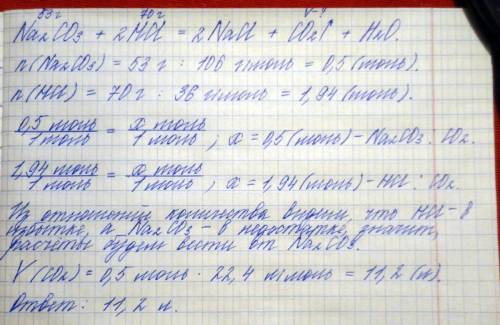 53г 70г V-?
Na₂CO₃ + 2HCl = 2NaCl + CO₂↑ + H₂O.
n(Na₂CO₃) = 53 г : 106 г/моль = 0,5 (моль).
n(HCl) = 70 г : 36 г/моль = 1,94 (моль).
0,5 моль / 1 моль = x моль / 1 моль ; x = 0,5 (моль) - Na₂CO₃ : CO₂.
1,94 моль / 1 моль = x моль / 1 моль ; x = 1,94 (моль) - HCl : CO₂
Из отношений количества видим, что HCl - в
избытке, а Na₂CO₃ - в недостатке, значит,
расчёты будем вести от Na₂CO₃.
V(CO₂) = 0,5 моль · 22,4 л/моль = 11,2 (л).
Ответ: 11,2 л.